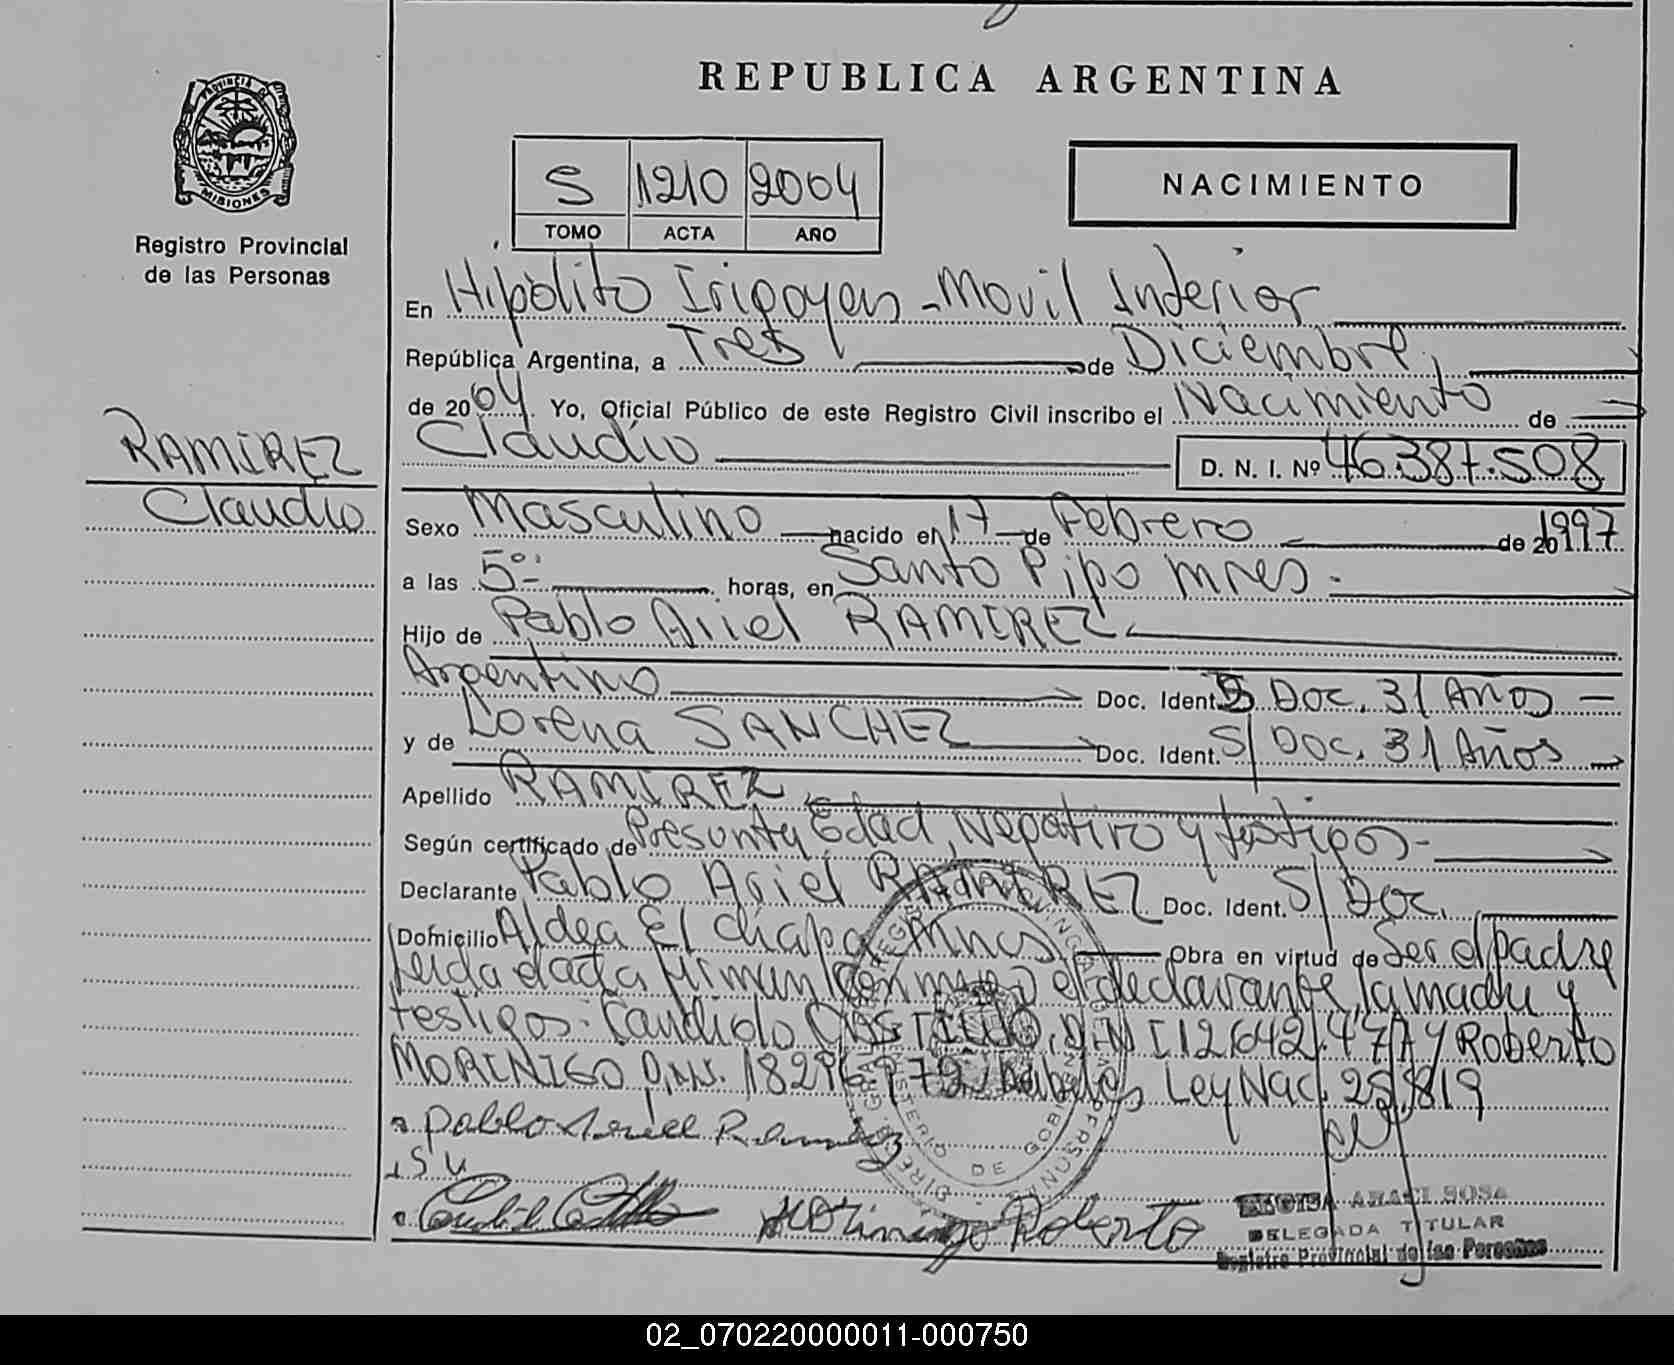 REPUBLICA ARGENTINA
PROVINCIA DE
MISIONES
Registro Provincial
de las Personas
S 1210 2004
TOMO ACTA AÑO
NACIMIENTO
En Hipólito Irigoyen - Movil Interior
República Argentina, a Tres de Diciembre
de 2004. Yo, Oficial Público de este Registro Civil inscribo el Nacimiento de
Claudio D. N. I. Nº 46.387.508
RAMIREZ
Claudio
Sexo Masculino nacido en 17 de Febrero de 201997
a las 5º horas, en Santo Pipo Mnes.
Hijo de Pablo Ariel RAMIREZ
Argentino Doc. Ident. S Doc. 31 Años
y de Lorena SANCHEZ Doc. Ident. S/ Doc. 31 Años
Apellido RAMIREZ
Según certificado de Presunta Edad, Negativo y testigos-
Declarante Pablo Ariel RAMIREZ Doc. Ident. S/ Doc.
Domicilio Aldea El chapa Mnes Obra en virtud de Ser el padre
Leida el acta firman conmigo el declarante, la madre y
testigos: Candido CASTILLO, D.N.I 12.642.477 y Roberto
MORINIGO D.N.I. 18296972 Ley Nac. 25.819
Pablo Ariel Ramirez
Morinigo Roberto
MINISTERIO DE GOBIERNO
ARACI SOSA
DELEGADA TITULAR
Registro Provincial de las Personas
02_070220000011-000750